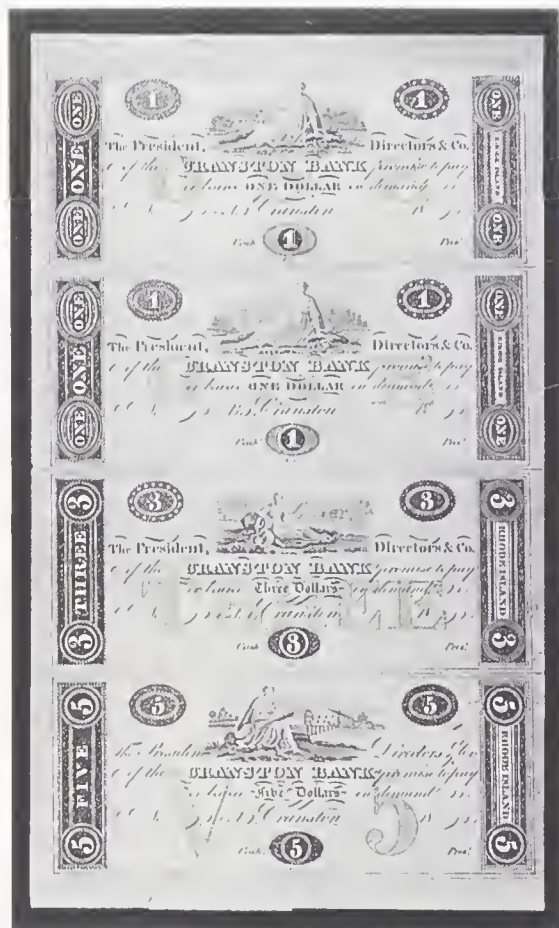 1 1
The President, Directors & Co.
of the CRANSTON BANK promise to pay
or bearer ONE DOLLAR on demand
Cranston 18
Cash. 1 Pres.
ONE ONE ONE
ONE RHODE ISLAND ONE
1 1
The President, Directors & Co.
of the CRANSTON BANK promise to pay
or bearer ONE DOLLAR on demand
Cranston 18
Cash. 1 Pres.
ONE ONE ONE
ONE RHODE ISLAND ONE
3 3
The President, Directors & Co.
of the CRANSTON BANK promise to pay
or bearer Three Dollars on demand
Cranston 18
Cash. 3 Pres.
3 THREE 3
3 RHODE ISLAND 3
5 5
The President Directors & Co
of the CRANSTON BANK promise to pay
or bearer Five Dollars on demand
Cranston 18
Cash. 5 Pres.
5 FIVE 5
5 RHODE ISLAND 5
V 5